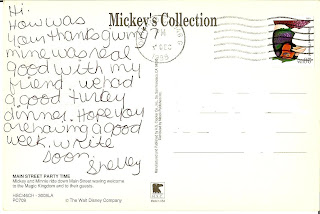 Hi.
How was
your thanksgiving
mine was real
good with my
friend. we had
a good turkey
dinner. Hope you
are having a good
week. write
soon.
Shelley
Mickey's Collection
MAIN STREET PARTY TIME
Mickey and Minnie ride down Main Street waving welcome
to the Magic Kingdom and to their guests.
© The Walt Disney Company